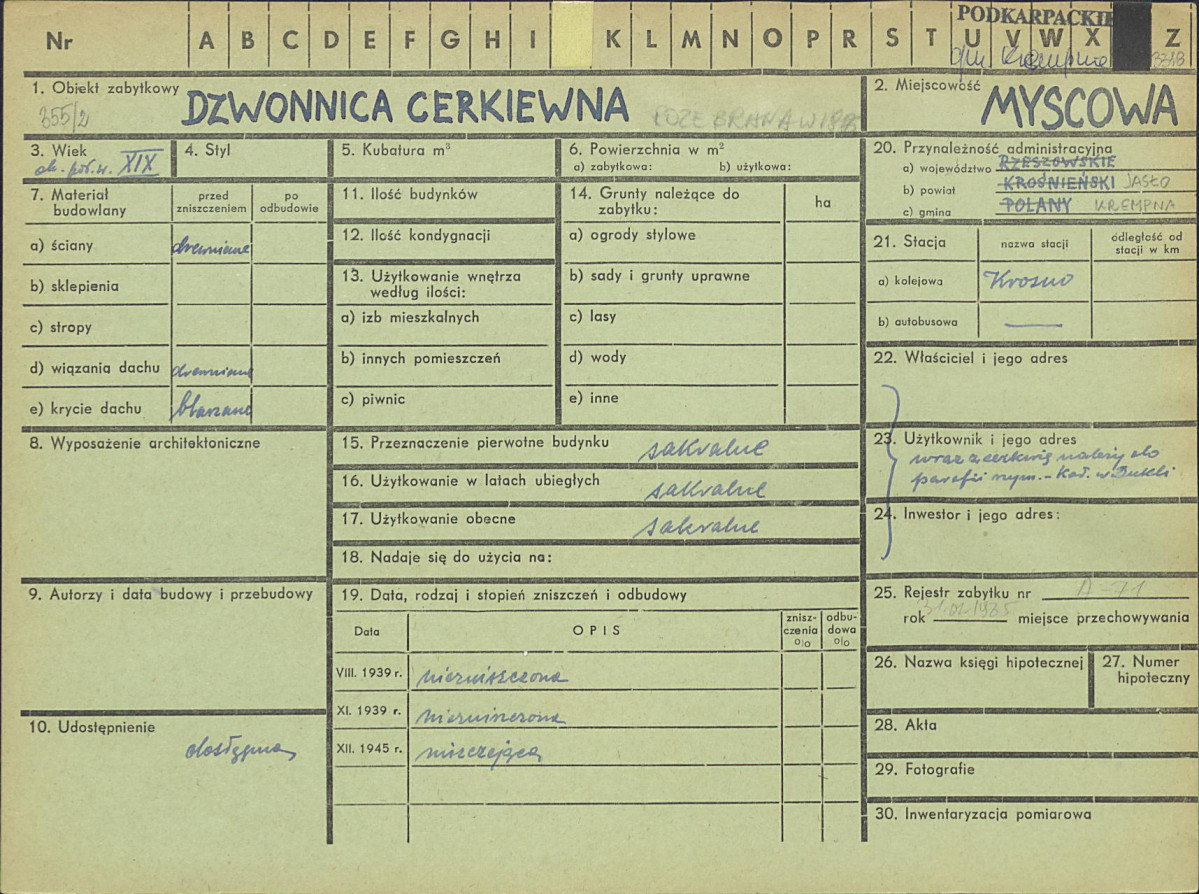 PODKARPACKIE
Nr A B C D E F G H I K L M N O P R S T U V W X Z
gm Krempna
3318
1. Obiekt zabytkowy
355/2
DZWONNICA CERKIEWNA
ROZEBRANA W
2. Miejscowość
MYSCOWA
3. Wiek
ok. poł. w. XIX
4. Styl
5. Kubatura m³
6. Powierzchnia w m²
a) zabytkowa: b) użytkowa:
20. Przynależność administracyjna
a) województwo RZESZOWSKIE
b) powiat KROŚNIEŃSKI JASŁO
c) gmina POLANY KREMPNA
7. Materiał budowlany
przed zniszczeniem
po odbudowie
a) ściany drewniane
b) sklepienia
c) stropy
d) wiązania dachu drewniane
e) krycie dachu blaszane
11. Ilość budynków
12. Ilość kondygnacji
13. Użytkowanie wnętrza
według ilości:
a) izb mieszkalnych
b) innych pomieszczeń
c) piwnic
14. Grunty należące do
zabytku:
ha
a) ogrody stylowe
b) sady i grunty uprawne
c) lasy
d) wody
e) inne
21. Stacja
nazwa stacji
odległość od
stacji w km
a) kolejowa Krosno
b) autobusowa —
22. Właściciel i jego adres
23. Użytkownik i jego adres
wraz z cerkwią należy do
parafii rzym.-kat. w Dukli
24. Inwestor i jego adres:
8. Wyposażenie architektoniczne
15. Przeznaczenie pierwotne budynku sakralne
16. Użytkowanie w latach ubiegłych sakralne
17. Użytkowanie obecne sakralne
18. Nadaje się do użycia na:
9. Autorzy i data budowy i przebudowy
10. Udostępnienie
dostępna
19. Data, rodzaj i stopień zniszczeń i odbudowy
Data
OPIS
znisz-
czenia
%
odbu-
dowa
%
VIII. 1939 r. niezniszczona
XI. 1939 r. niezniszczona
XII. 1945 r. niszczejąca
25. Rejestr zabytku nr A-71
rok 31.01.1985 miejsce przechowywania
26. Nazwa księgi hipotecznej
27. Numer
hipoteczny
28. Akta
29. Fotografie
30. Inwentaryzacja pomiarowa